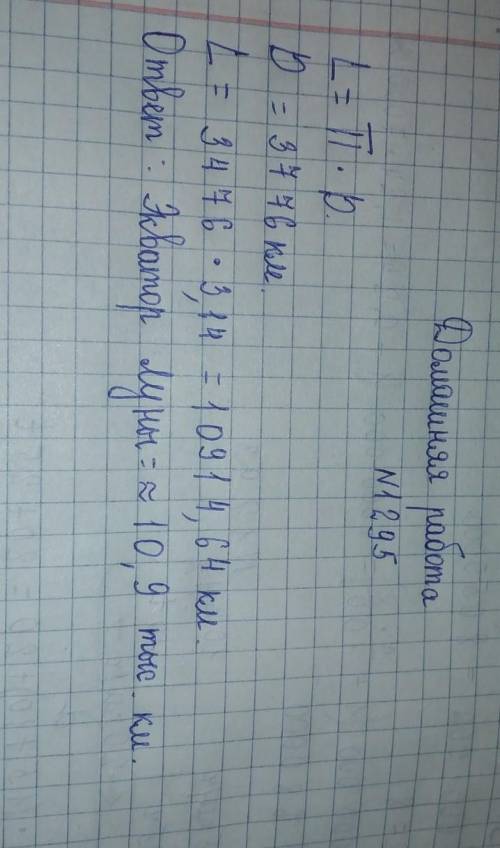 Домашняя работа
N1295
L = П · D.
D = 3776 км.
L = 3476 · 3,14 = 10914,64 км.
Ответ: Экватор Луны = ≈ 10,9 тыс. км.